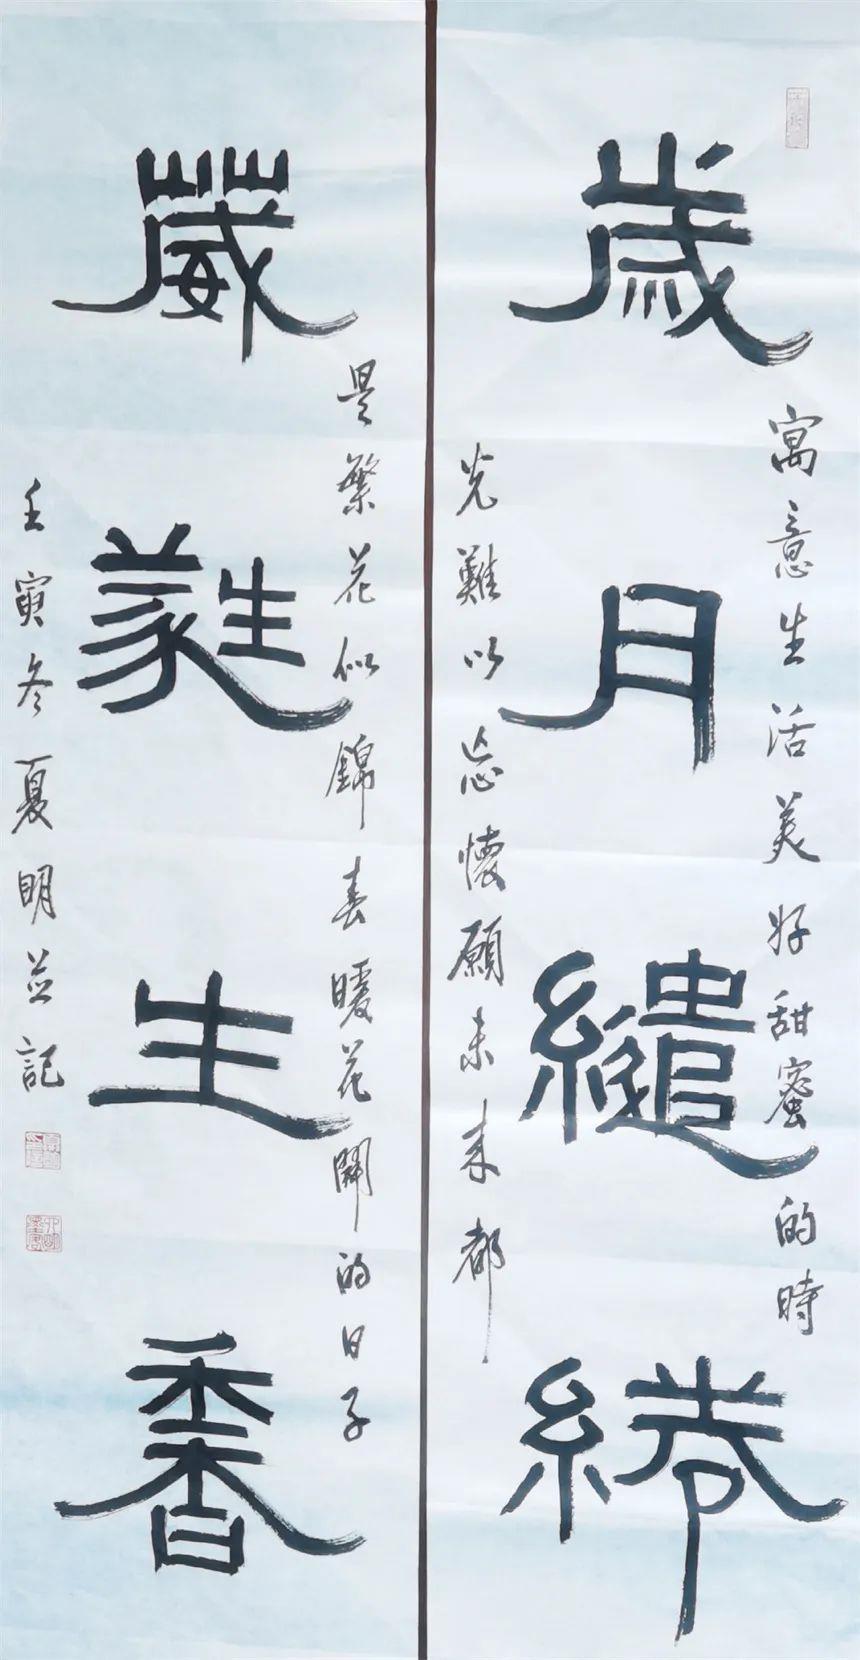 歲月繾綣
寓意生活美好甜蜜的時
光難以忘懷願未来都
葳蕤生香
是繁花似錦春暖花開的日子
壬寅冬夏明並記